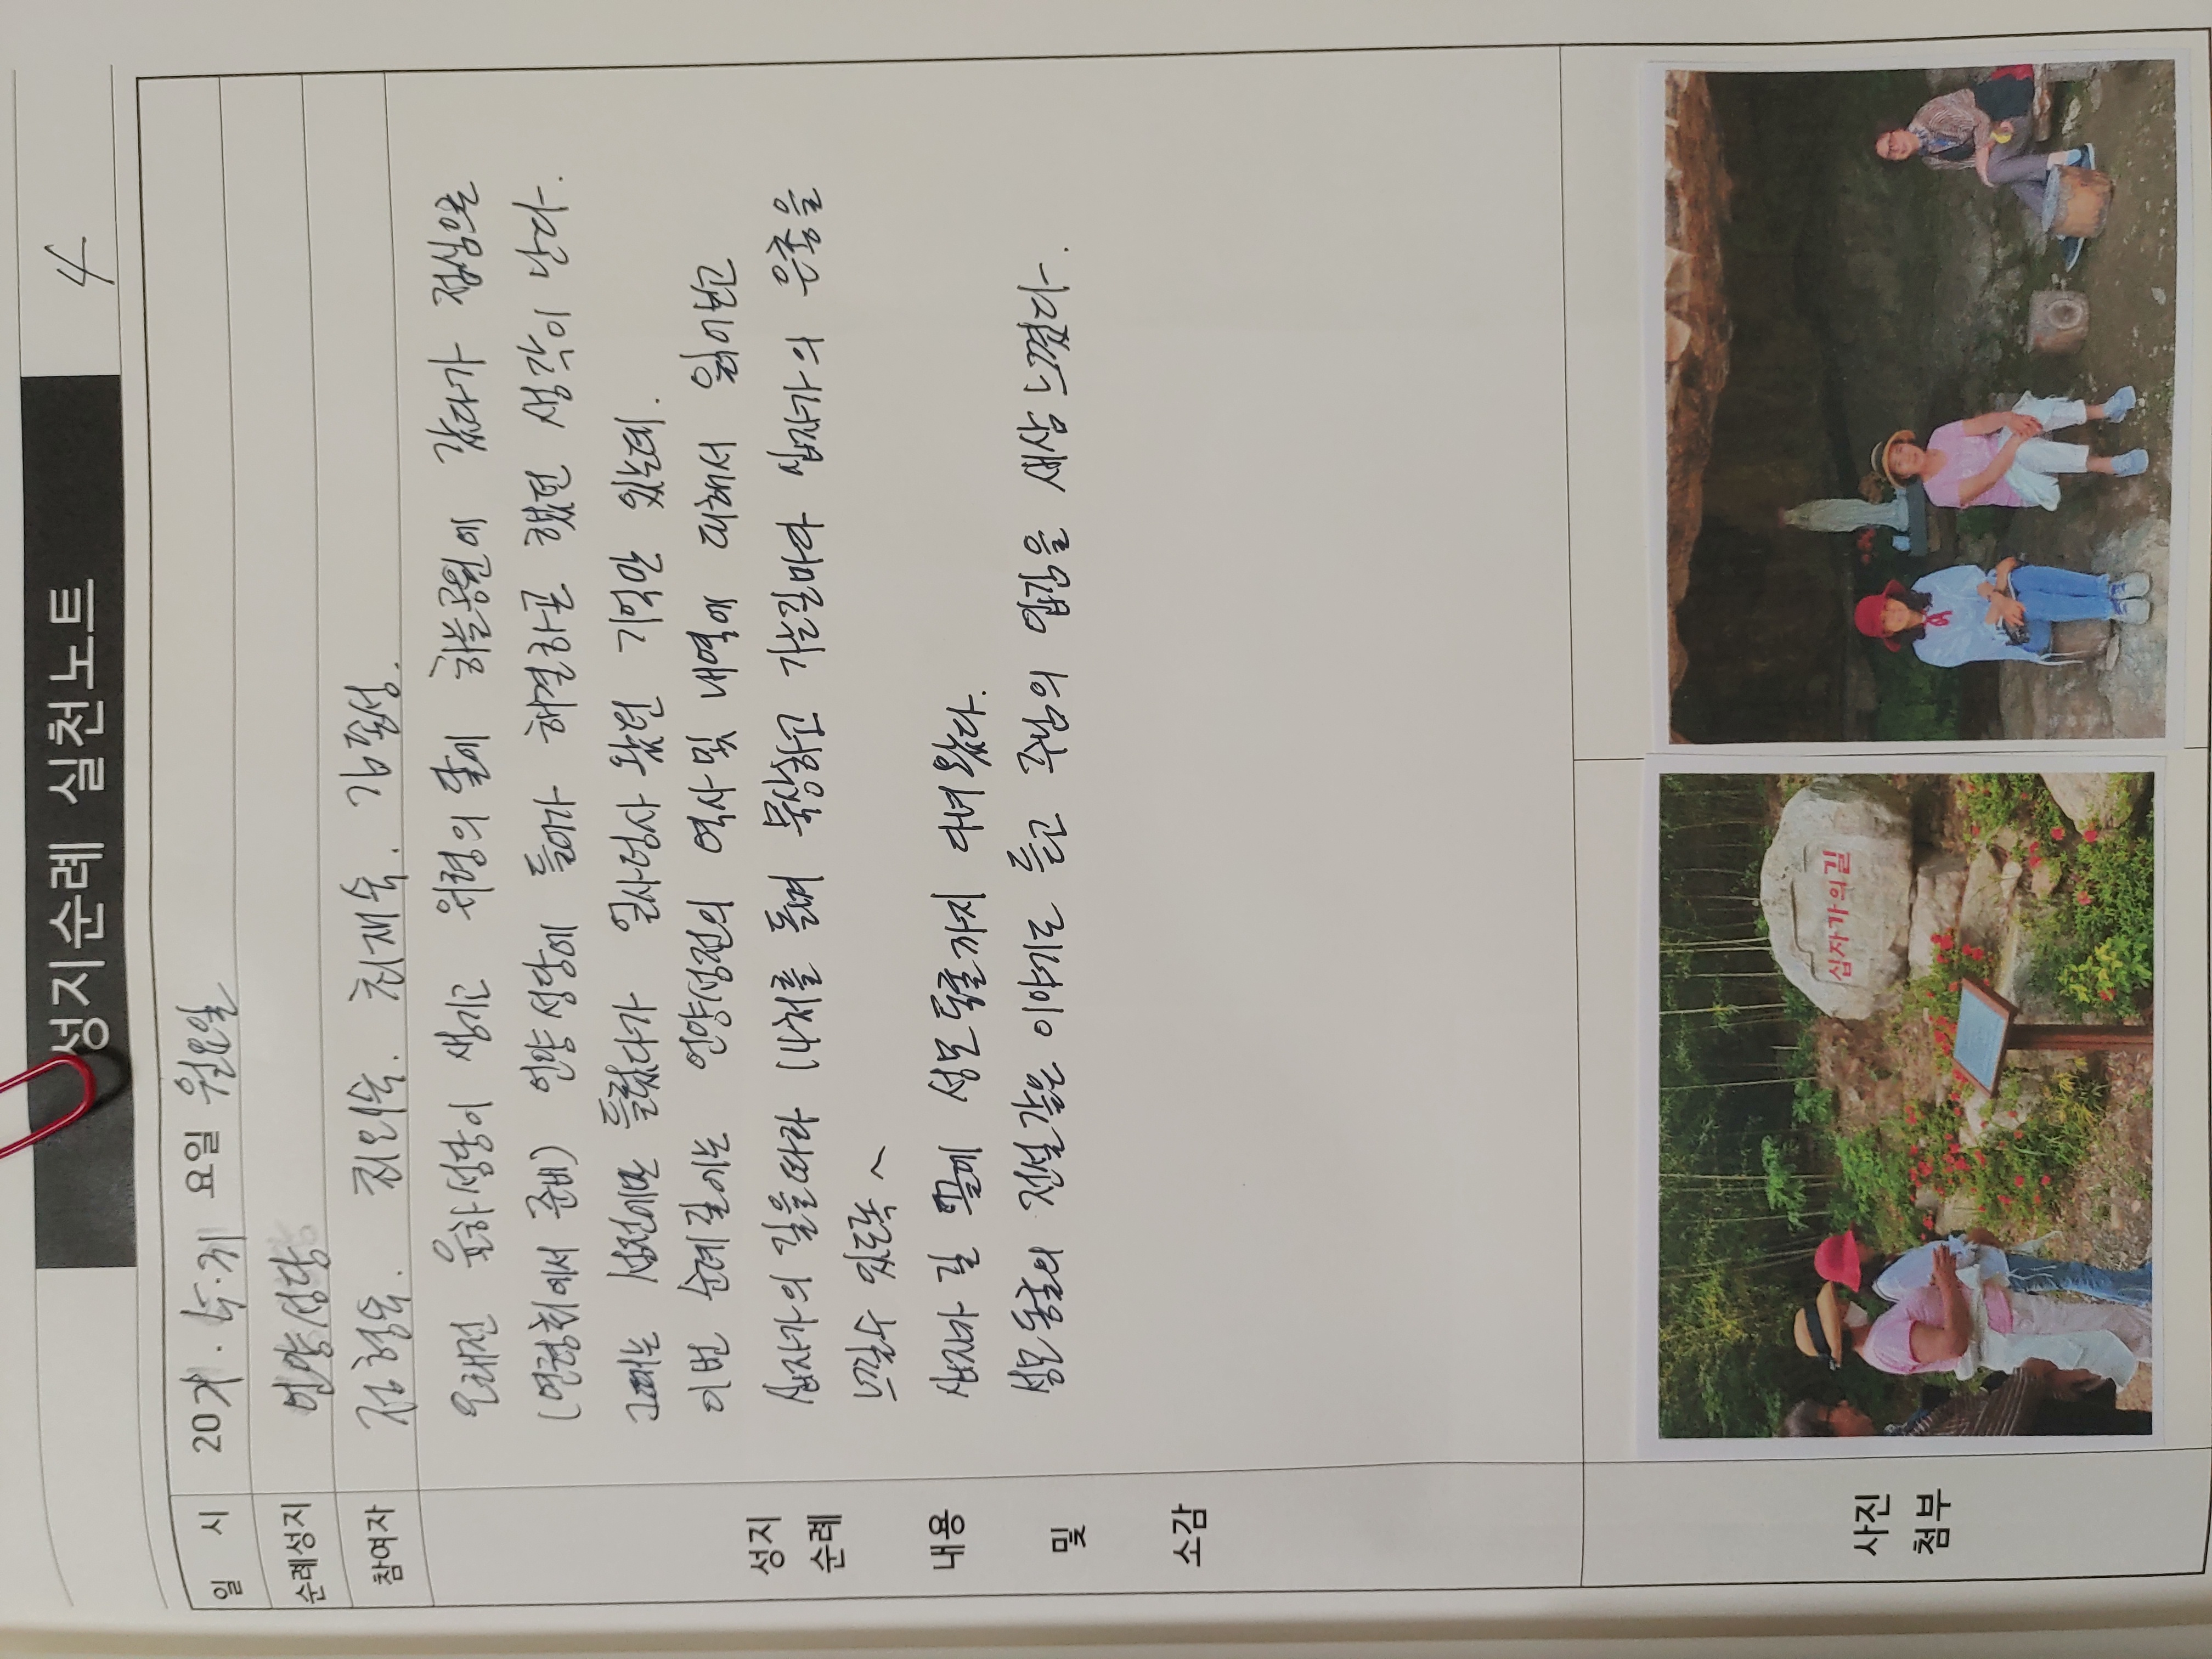 성지순례 실천노트 4
일 시 20 . 5. 요일 월요일
순례성지 언양성당
참여자 정형숙. 최외숙. 최재숙. 김 성.
오래전 율하성당이 생기고 위령의 달에 하늘공원에 갔다가 점심으로
(연령회에서 준비) 언양성당에 들어가 해결하곤 했던 생각이 난다.
그때는 성전에만 들렸다가 얼사덩사 왔던 기억만 있는데.
이번 순례길에는 언양성전의 역사 및 내역에 대해서 읽어보고
십자가의 길을 따라 14처를 돌며 묵상하고 가는길마다 십자가의 은총을
느낄수 있도록 ~
십자가 길 끝에 성모동굴까지 다녀왔다.
성모동굴의 전설같은 이야기도 듣고 주님의 입김을 새삼 느꼈다.
성지
순례
내용
및
소감
사진
첨부
십자가의길